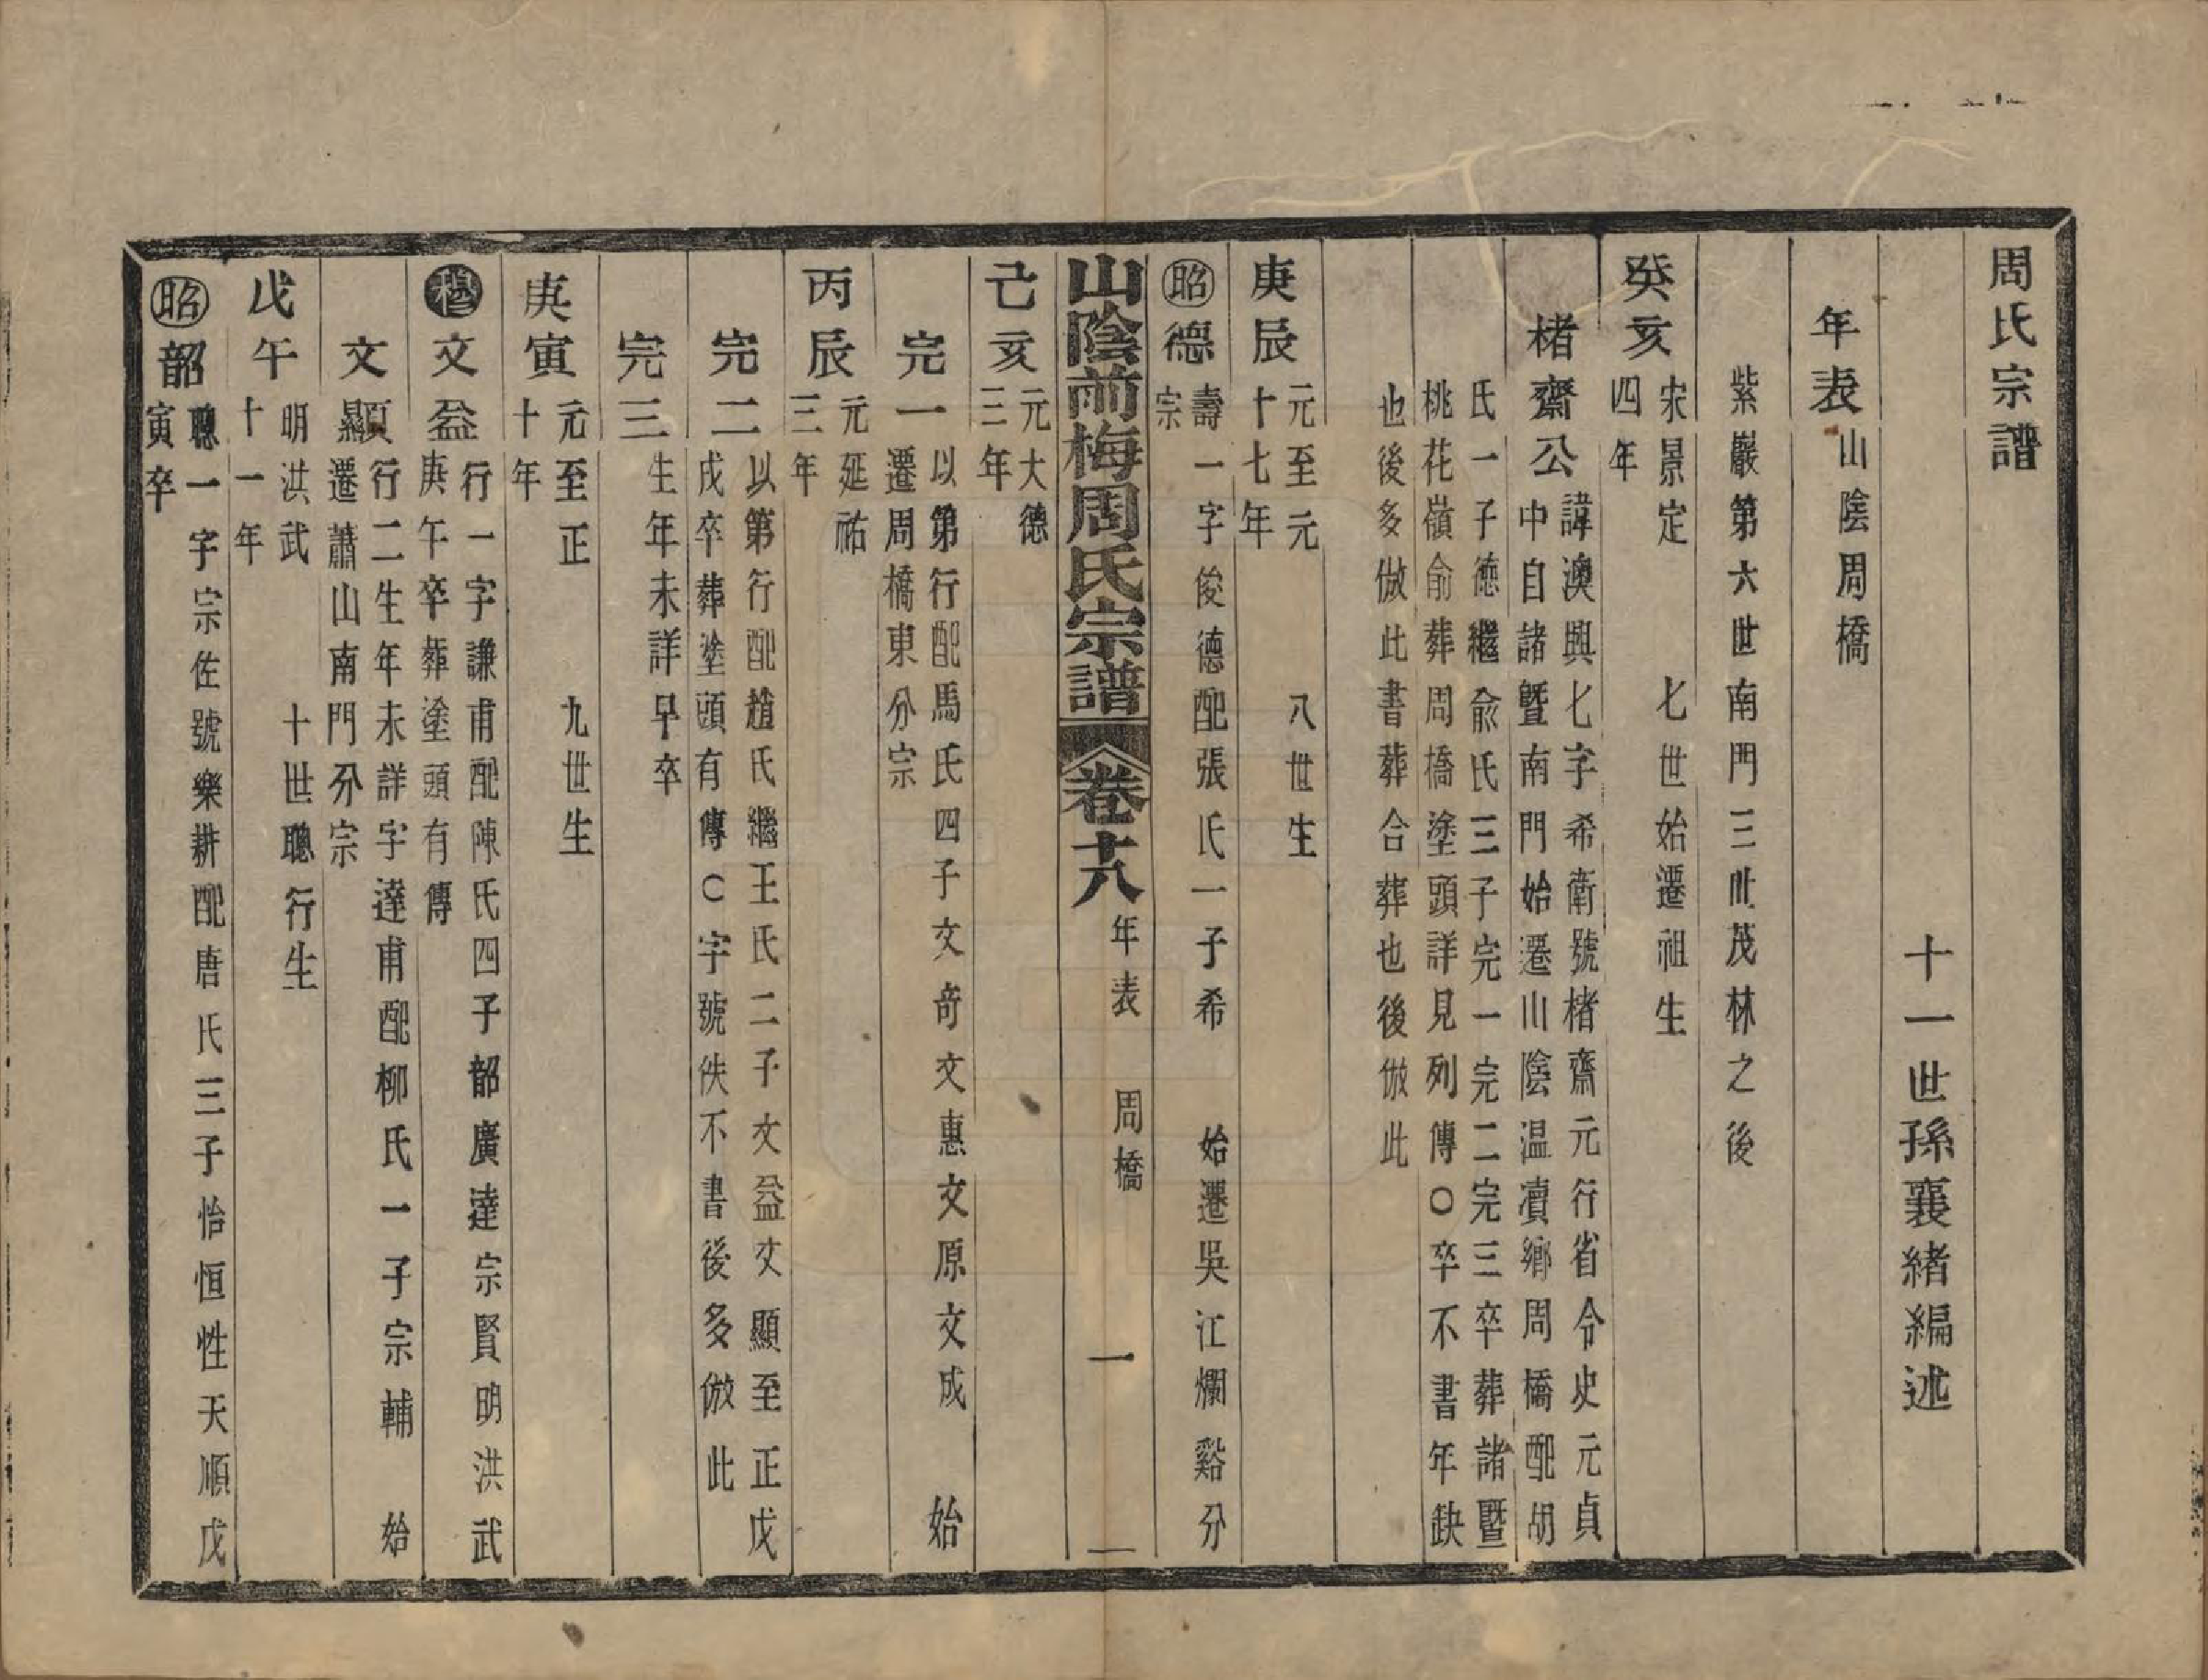 周氏宗譜
十一世孫襄緒編述
年表山陰周橋
紫巖第六世南門三世茂林之後
癸亥宋景定四年 七世始遷祖生
楮齋公諱澳興七字希衛號楮齋元行省令史元貞
中自諸暨南門始遷山陰温瀆鄉周橋配胡
氏一子德繼俞氏三子完一完二完三卒葬諸暨
桃花嶺俞葬周橋塗頭詳見列傳○卒不書年缺
也後多倣此書葬合葬也後倣此
庚辰元至元十七年 八世生
昭德壽一字俊德配張氏一子希 始遷吳江爛谿分
宗
山陰前梅周氏宗譜 卷十八 年表 周橋 一
己亥元大德三年
完一以第行配馬氏四子文奇文惠文原文成 始
遷周橋東分宗
丙辰元延祐三年
完二以第行配趙氏繼王氏二子文益文顯至正戊
戌卒葬塗頭有傳○字號佚不書後多倣此
完三生年未詳早卒
庚寅元至正十年 九世生
穆文益行一字謙甫配陳氏四子韶廣達宗賢明洪武
庚午卒葬塗頭有傳
文顯行二生年未詳字達甫配柳氏一子宗輔 始
遷蕭山南門分宗
戊午明洪武十一年 十世聰行生
昭韶聰一字宗佐號樂耕配唐氏三子怡恒性天順戊
寅卒